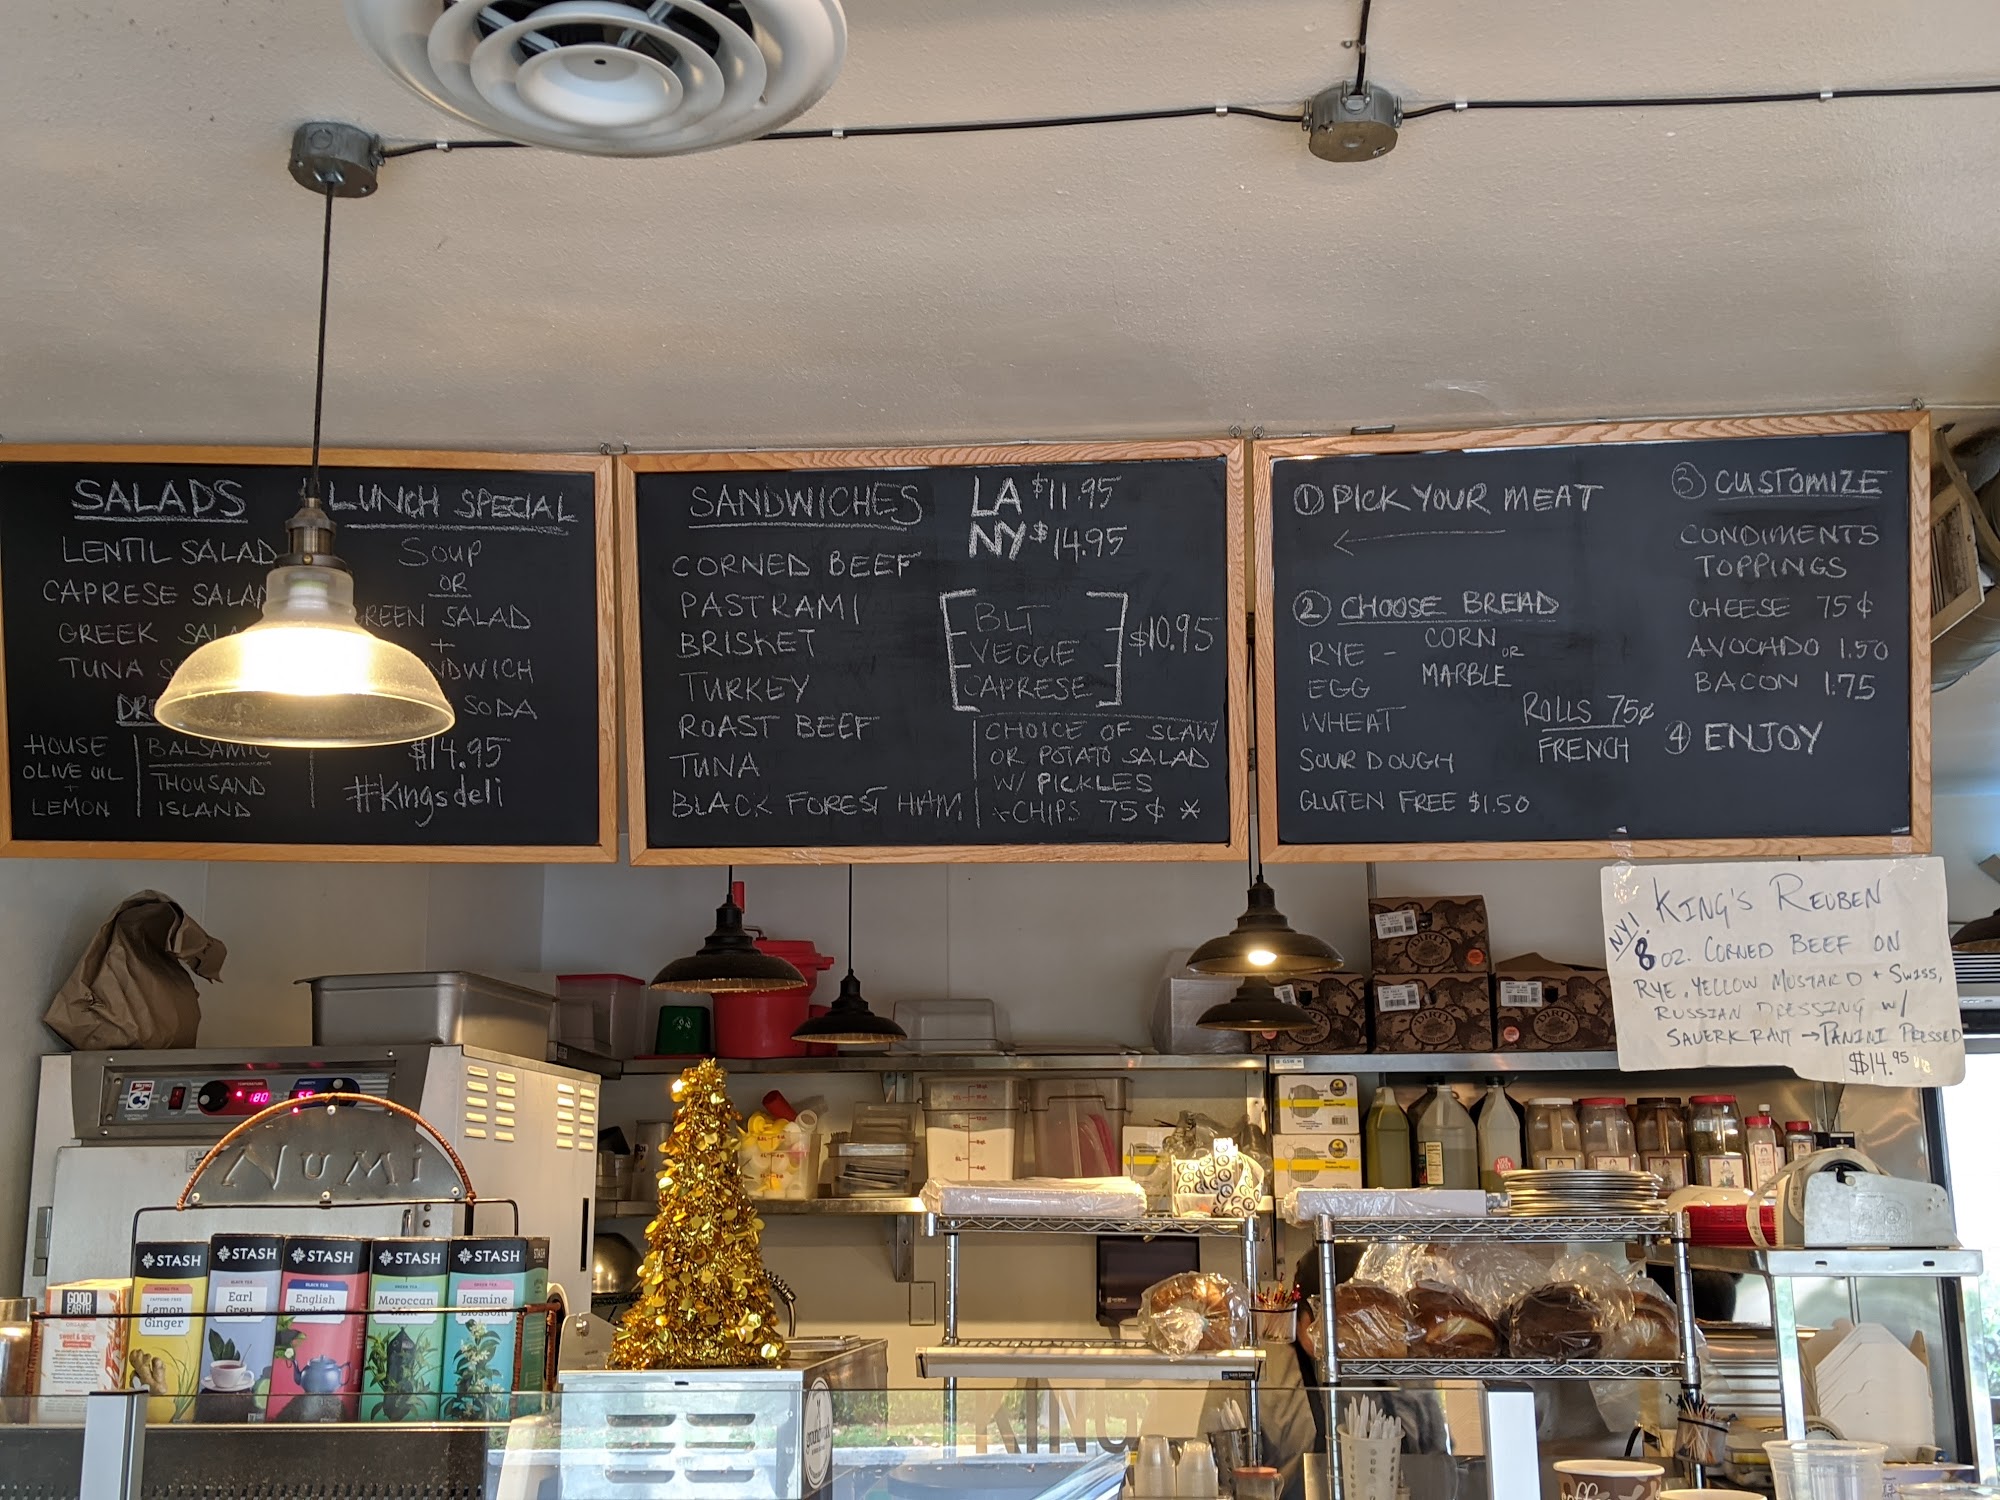 SALADS
LENTIL SALAD
CAPRESE SALAD
GREEK
TUNA
HOUSE
OLIVE OIL
+
LEMON
BALSAMIC
THOUSAND
ISLAND
LUNCH SPECIAL
SOUP
OR
GREEN SALAD
+
SODA
$14.95
#kingsdeli
SANDWICHES
LA $11.95
NY $14.95
CORNED BEEF
PASTRAMI
BRISKET
TURKEY
ROAST BEEF
TUNA
BLACK FOREST HAM
BLT
VEGGIE
CAPRESE
$10.95
CHOICE OF SLAW
OR POTATO SALAD
W/ PICKLES
+CHIPS 75¢ *
① PICK YOUR MEAT
② CHOOSE BREAD
RYE - CORN OR
MARBLE
EGG
WHEAT
SOUR DOUGH
GLUTEN FREE $1.50
ROLLS 75¢
FRENCH
③ CUSTOMIZE
CONDIMENTS
TOPPINGS
CHEESE 75¢
AVOCADO 1.50
BACON 1.75
④ ENJOY
NY! KING'S REUBEN
8 OZ. CORNED BEEF ON
RYE, YELLOW MUSTARD + SWISS,
RUSSIAN DRESSING W/
SAUERKRAUT → PANINI PRESSED
$14.95
DIRTY
DIRTY
DIRTY
C5
180
NUMI
GOOD
EARTH
sweet & spicy
STASH
Lemon
Ginger
STASH
BLACK TEA
Earl
Grey
STASH
BLACK TEA
English
Breakfast
STASH
GREEN TEA
Moroccan
STASH
GREEN TEA
Jasmine
Blossom
STASH
KING
coffee